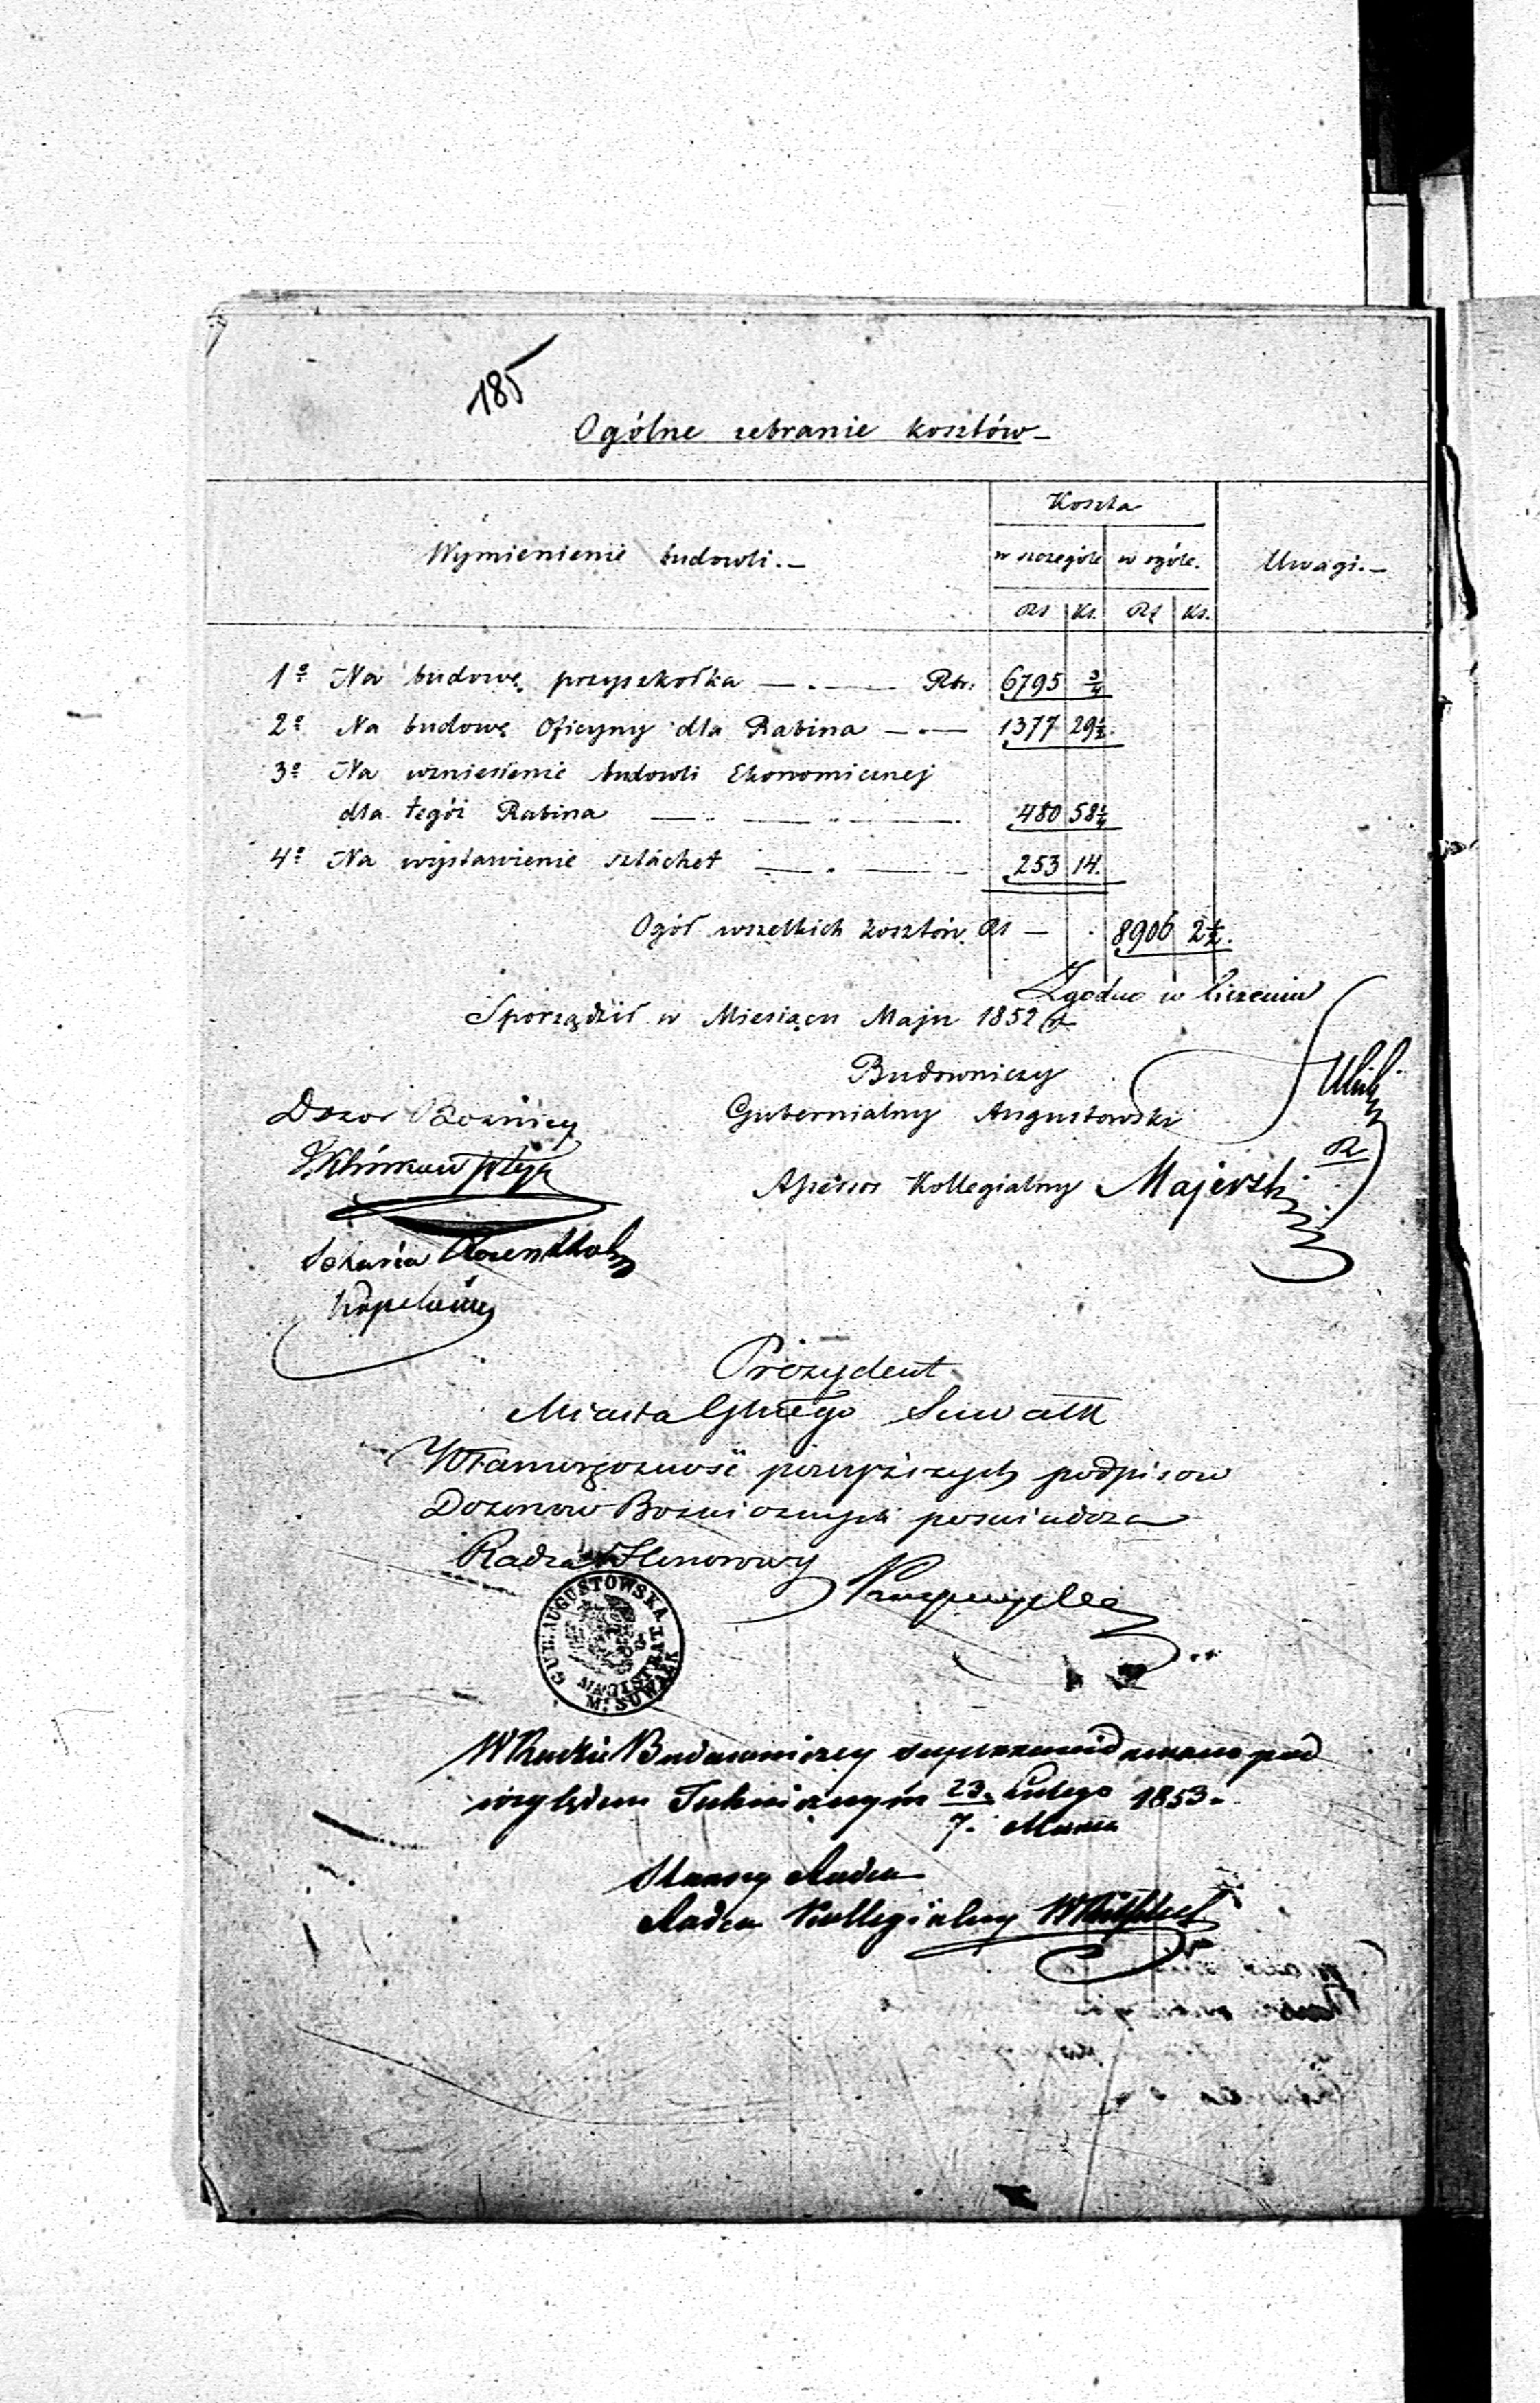 185
Ogólne zebranie kosztów
Wymienienie budowli.
Koszta
w szczególe w ogóle.
Uwagi.
Rs Ks. Rs Ks.
1º Na budowę przyszkołka Rbr. 6795 3/4
2º Na budowę Oficyny dla Rabina 1377 29 1/2
3º Na wzniesienie budowli Ekonomicznej
dla tegóż Rabina 480 58 1/4
4º Na wystawienie sztachet 253 14.
Ogół wszelkich kosztów Rs 8906 2 1/2.
Zgodne w liczeniu
Sporządził w Miesiącu Maju 1852 r
Budowniczy
Gubernialny Augustowski
Assessor Kollegialny Majerski
Dozor Bożnicy
Rosenthal
Kopelowicz
Prezydent
Miasta Głnego Suwałk
Własnoręczność powyższych podpisow
Dozorow Bozniczych poswiadcza
Radca Honorowy
GUB: AUGUSTOWSKA
MAGISTRAT
M. SUWAŁK
W Radzie Budowniczey superrewidowano pod
względem Technicznym 23 Lutego 1853
7. Marca
Starszy Radca
Radca Kollegialny